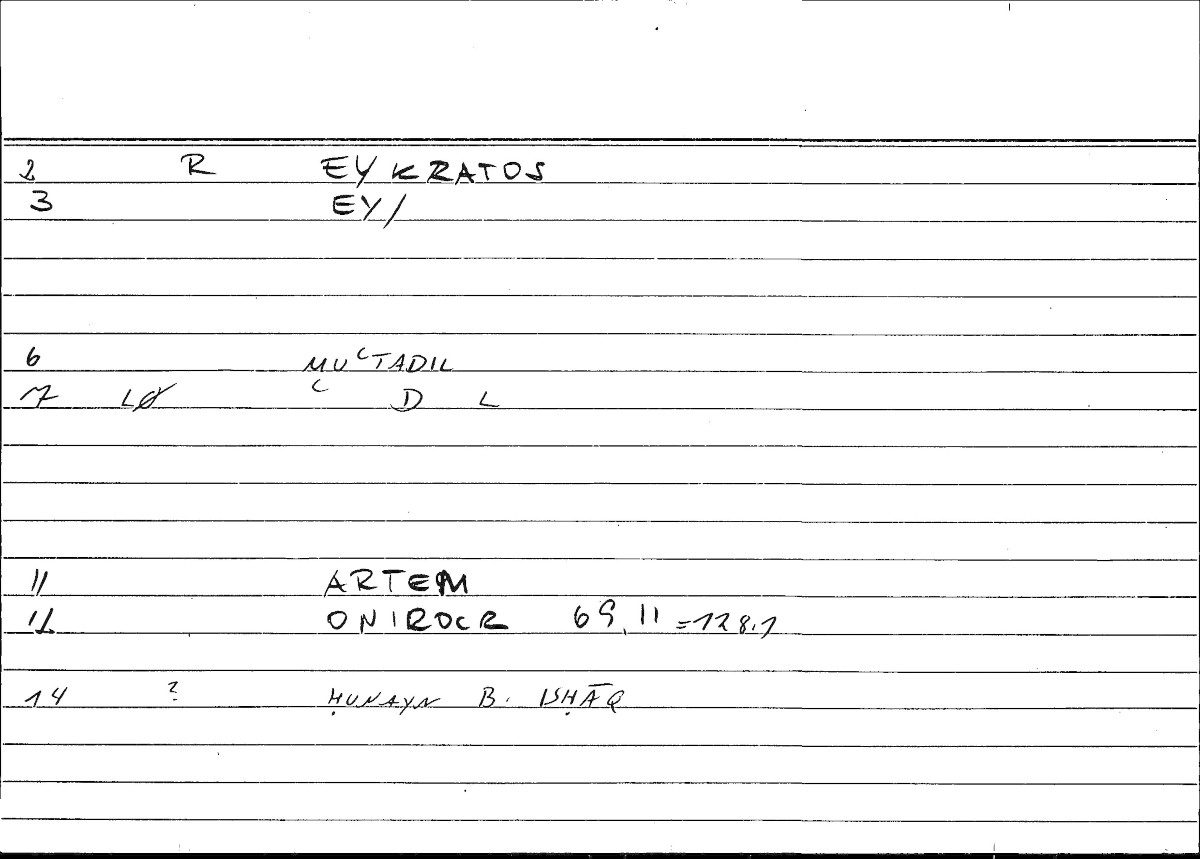 2 R EYKRATOS
3 EY/
6 MUʿTADIL
7 LØ ʿ D L
11 ARTEM
12 ONIROCR 69,11 =128.1
14 ? ḤUNAYN B. ISḤĀQ